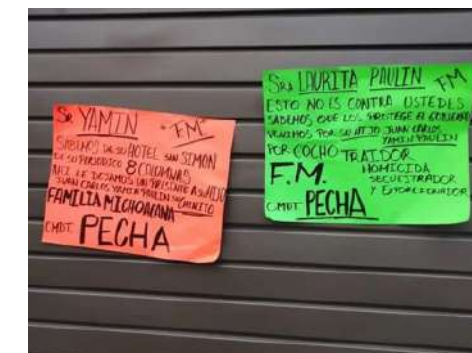 Sr. YAMIN "FM"
SABEMOS DE SU HOTEL SAN SIMON
DE SU PERIODICO 8 COLUMNAS
LE DEJAMOS UN PRESENTE A SU HIJO
JUAN CARLOS YAMIN PAULIN
FAMILIA MICHOACANA
CMDT. PECHA
Sra LAURITA PAULIN FM
ESTO NO ES CONTRA USTEDES
SABEMOS QUE LOS PROTEGE EL GOBIERNO
VENIMOS POR SU HIJO JUAN CARLOS
YAMIN PAULIN
POR COCHO TRAIDOR
F.M. HOMICIDA
SECUESTRADOR
Y EXTORSIONADOR
CMDT. PECHA